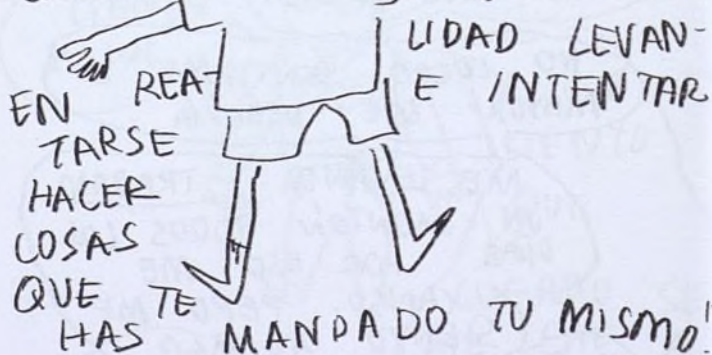 EN REALIDAD LEVAN-
TARSE E INTENTAR
HACER
COSAS
QUE TE
HAS MANDADO TU MISMO!